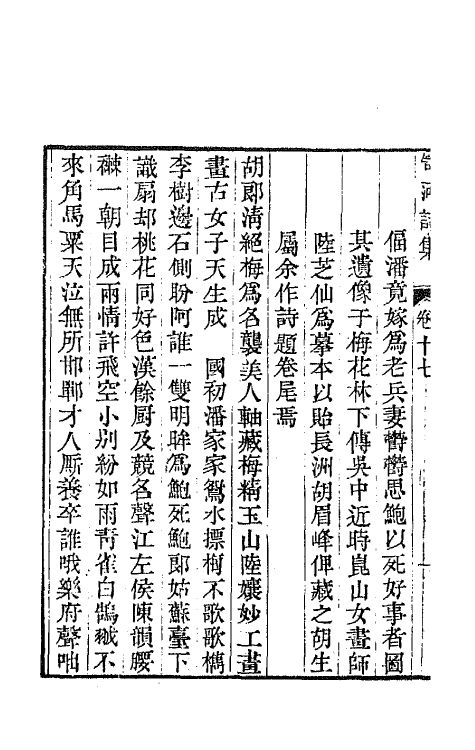 笥河詩集 卷十七
偪潘竟嫁爲老兵妻鬱鬱思鮑以死好事者圖
其遺像于梅花林下傳吳中近時崑山女畫師
陸芝仙爲摹本以貽長洲胡眉峰俾藏之胡生
屬余作詩題卷尾焉
胡郎淸絕梅爲名襲美人軸藏梅精玉山陸孃妙工畫
畫古女子天生成　國初潘家家鴛水摽梅不歌歌檇
李樹邊石側盼阿誰一雙明眸爲鮑死鮑郎姑蘇臺下
識扇却桃花同好色漢餘厨及競名聲江左侯陳韻膠
䊀一朝目成兩情許飛空小別紛如雨靑雀白鵠緘不
來角馬粟天泣無所邯鄲才人厮養卒誰哦樂府聲咄